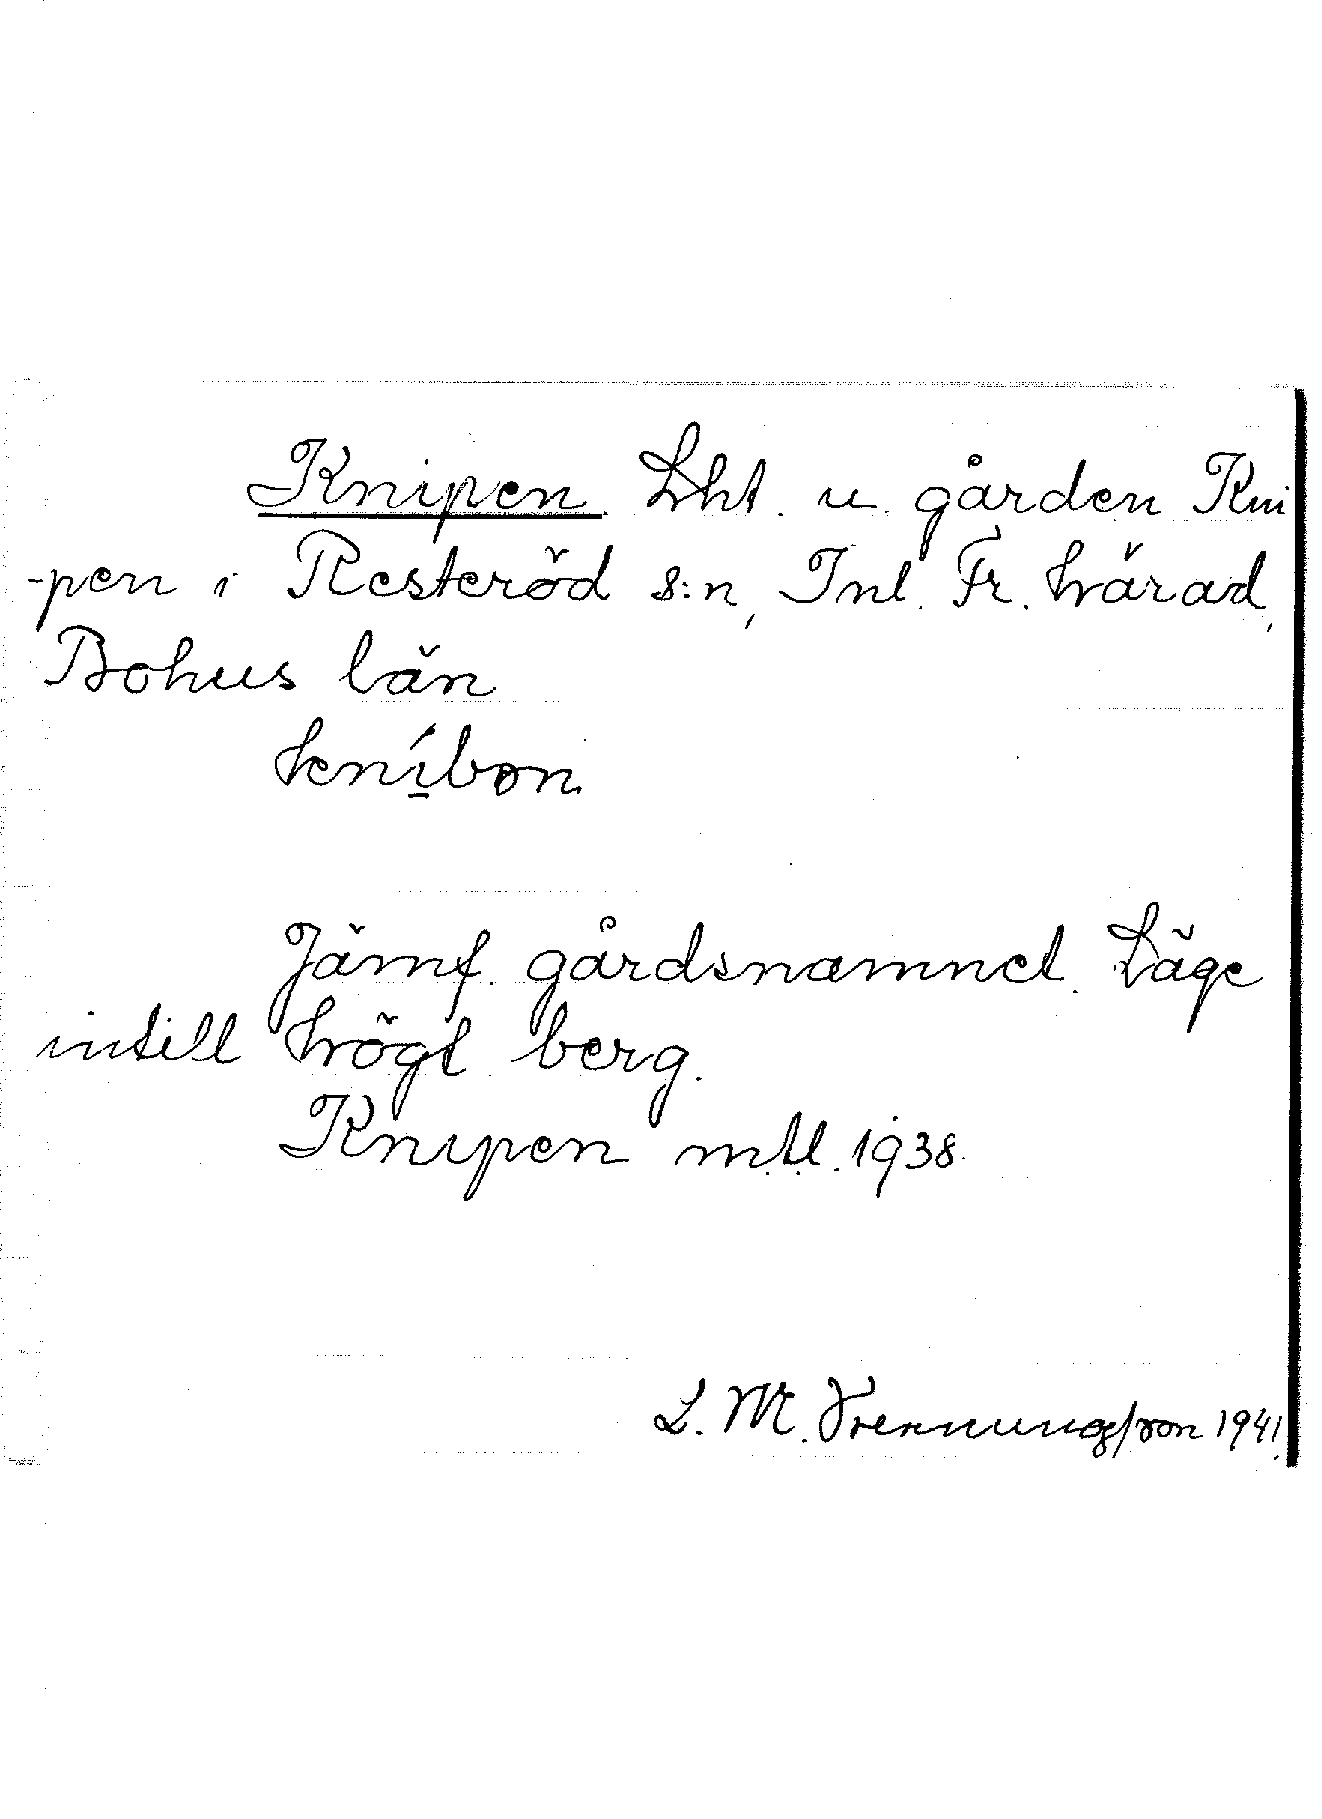 Knipen. Lht. u. gården Kni
-pen i Resteröd s:n, Inl. Fr. härad,
Bohus län
kníbən.
Jämf. gårdsnamnet. Läge
intill högt berg.
Knipen mtl. 1938.
L. M. 1941.